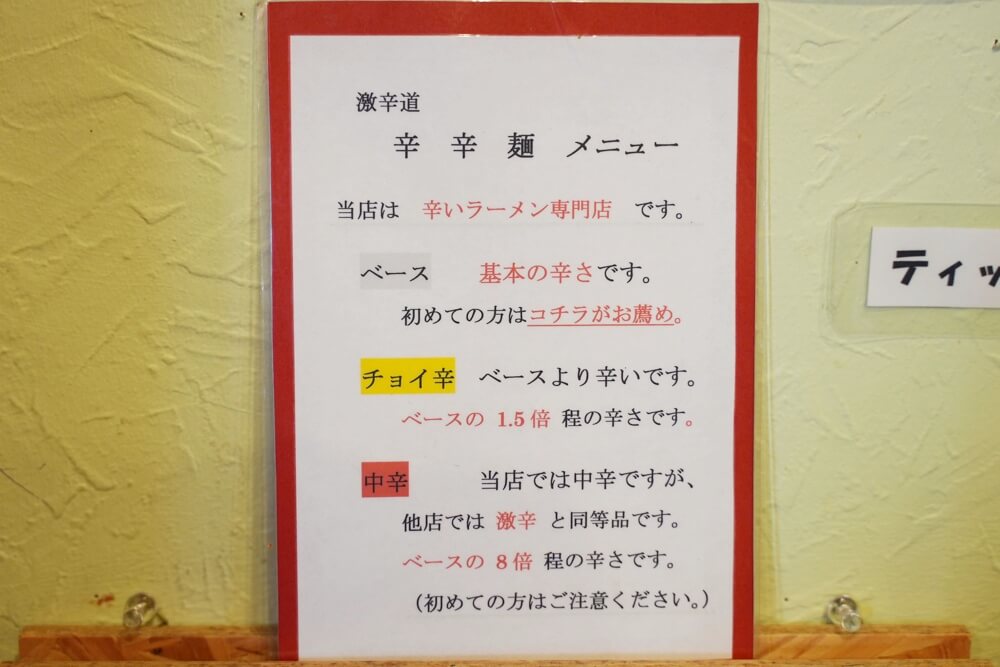 激辛道
辛 辛 麺 メニュー
当店は 辛いラーメン専門店 です。
ベース 基本の辛さです。
初めての方はコチラがお薦め。
チョイ辛 ベースより辛いです。
ベースの 1.5倍 程の辛さです。
中辛 当店では中辛ですが、
他店では 激辛 と同等品です。
ベースの 8倍 程の辛さです。
（初めての方はご注意ください。）
ティッ